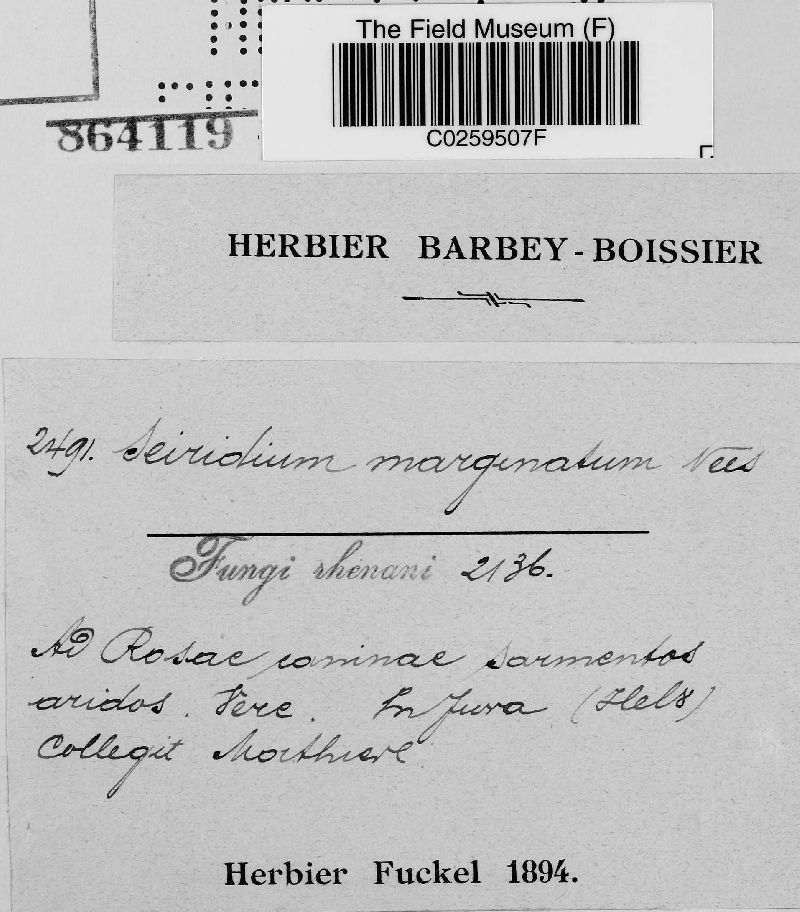 The Field Museum (F)
C0259507F
864119
HERBIER BARBEY-BOISSIER
2491. Seiridium marginatum Nees
Fungi rhenani 2136.
Ad Rosae caninae sarmentos
aridos. Vere. In Jura (Helv)
Collegit Morthier
Herbier Fuckel 1894.